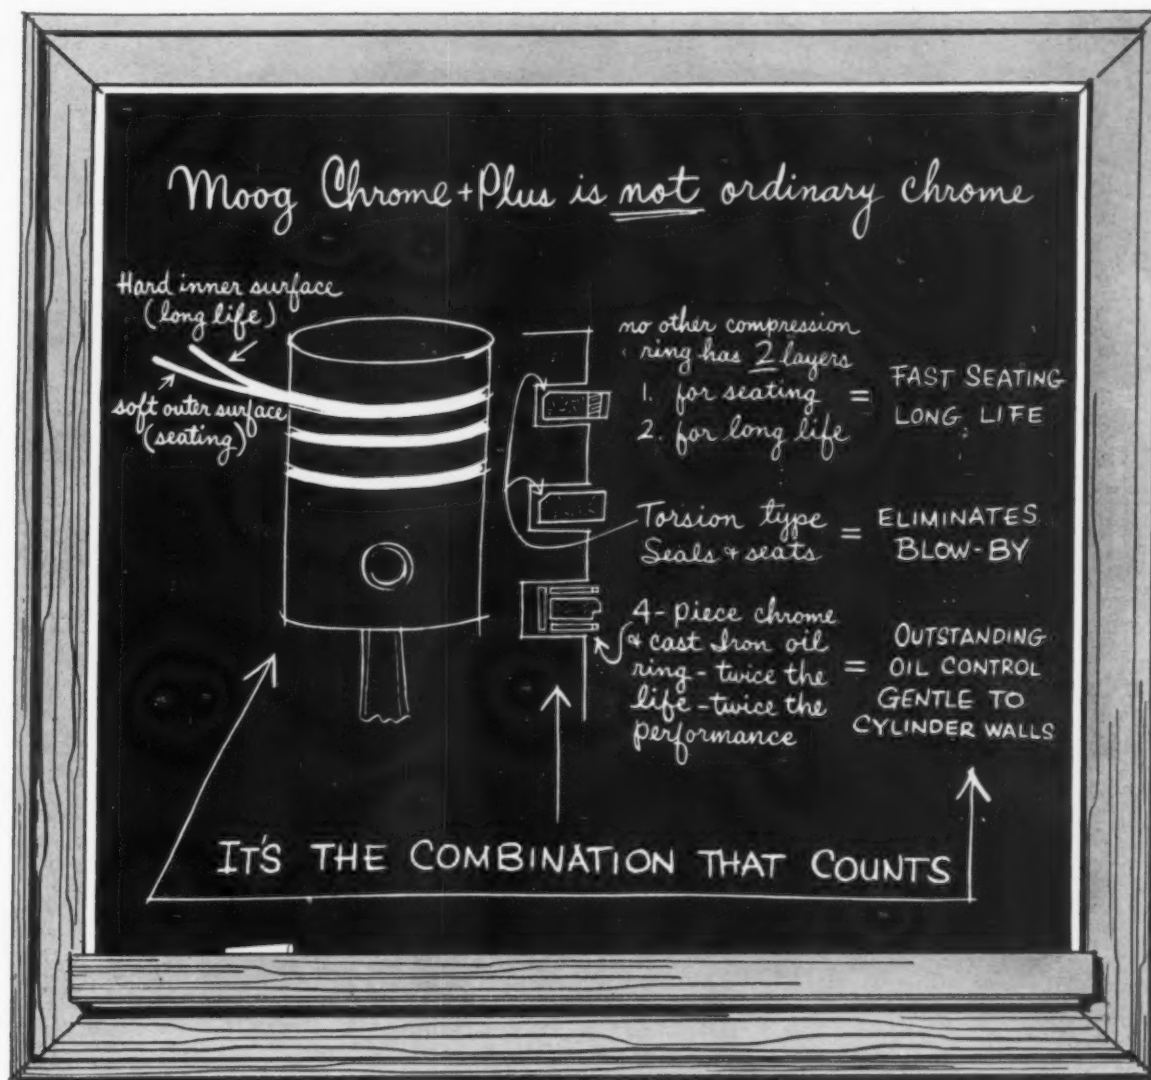 Moog Chrome + Plus is not ordinary chrome
Hard inner surface
(long life)
soft outer surface
(seating)
no other compression
ring has 2 layers
1. for seating
2. for long life
= FAST SEATING
LONG LIFE
Torsion type
Seals & seats
= ELIMINATES
BLOW-BY
4-piece chrome
& cast Iron oil
ring - twice the
life - twice the
performance
= OUTSTANDING
OIL CONTROL
GENTLE TO
CYLINDER WALLS
IT'S THE COMBINATION THAT COUNTS